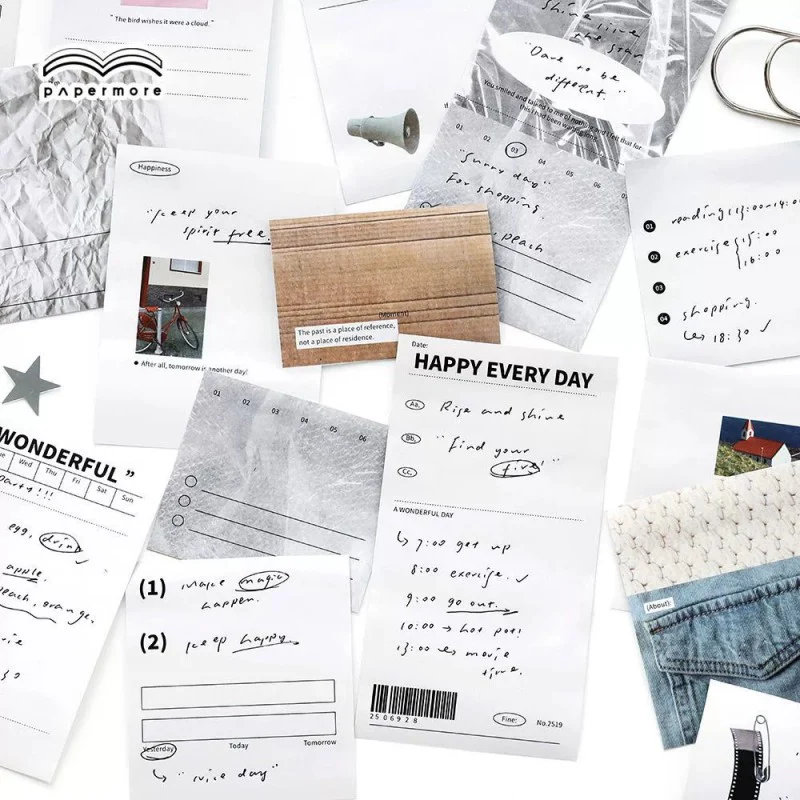 "The bird wishes it were a cloud."
pApermore
Happiness
"keep your
spirit free.
After all, tomorrow is another day!
shine like
the star
"Dare to be
different."
You smiled and talked to me of nothing and I felt that for
this I had been
01 02 03 04 05 06
"Sunny day"
For shopping
peach
(Moment)
The past is a place of reference,
not a place of residence.
01 reading
02 exercise 15:00
16:00
03
04 shopping.
18:30
WONDERFUL ”
Wed Thu Fri Sat Sun
Party!!!
egg, drink
apple.
peach, orange,
01 02 03 04 05 06
(1) Make magic
happen.
(2) keep happy.
Yesterday Today Tomorrow
"nice day"
Date:
HAPPY EVERY DAY
Aa. Rise and shine
Bb. "find your
Cc. fire!"
A WONDERFUL DAY
7:00 get up
8:00 exercise.
9:00 go out.
10:00 → hot pot!
13:00 movie
time.
2506928
Fine: No.2519
(About):